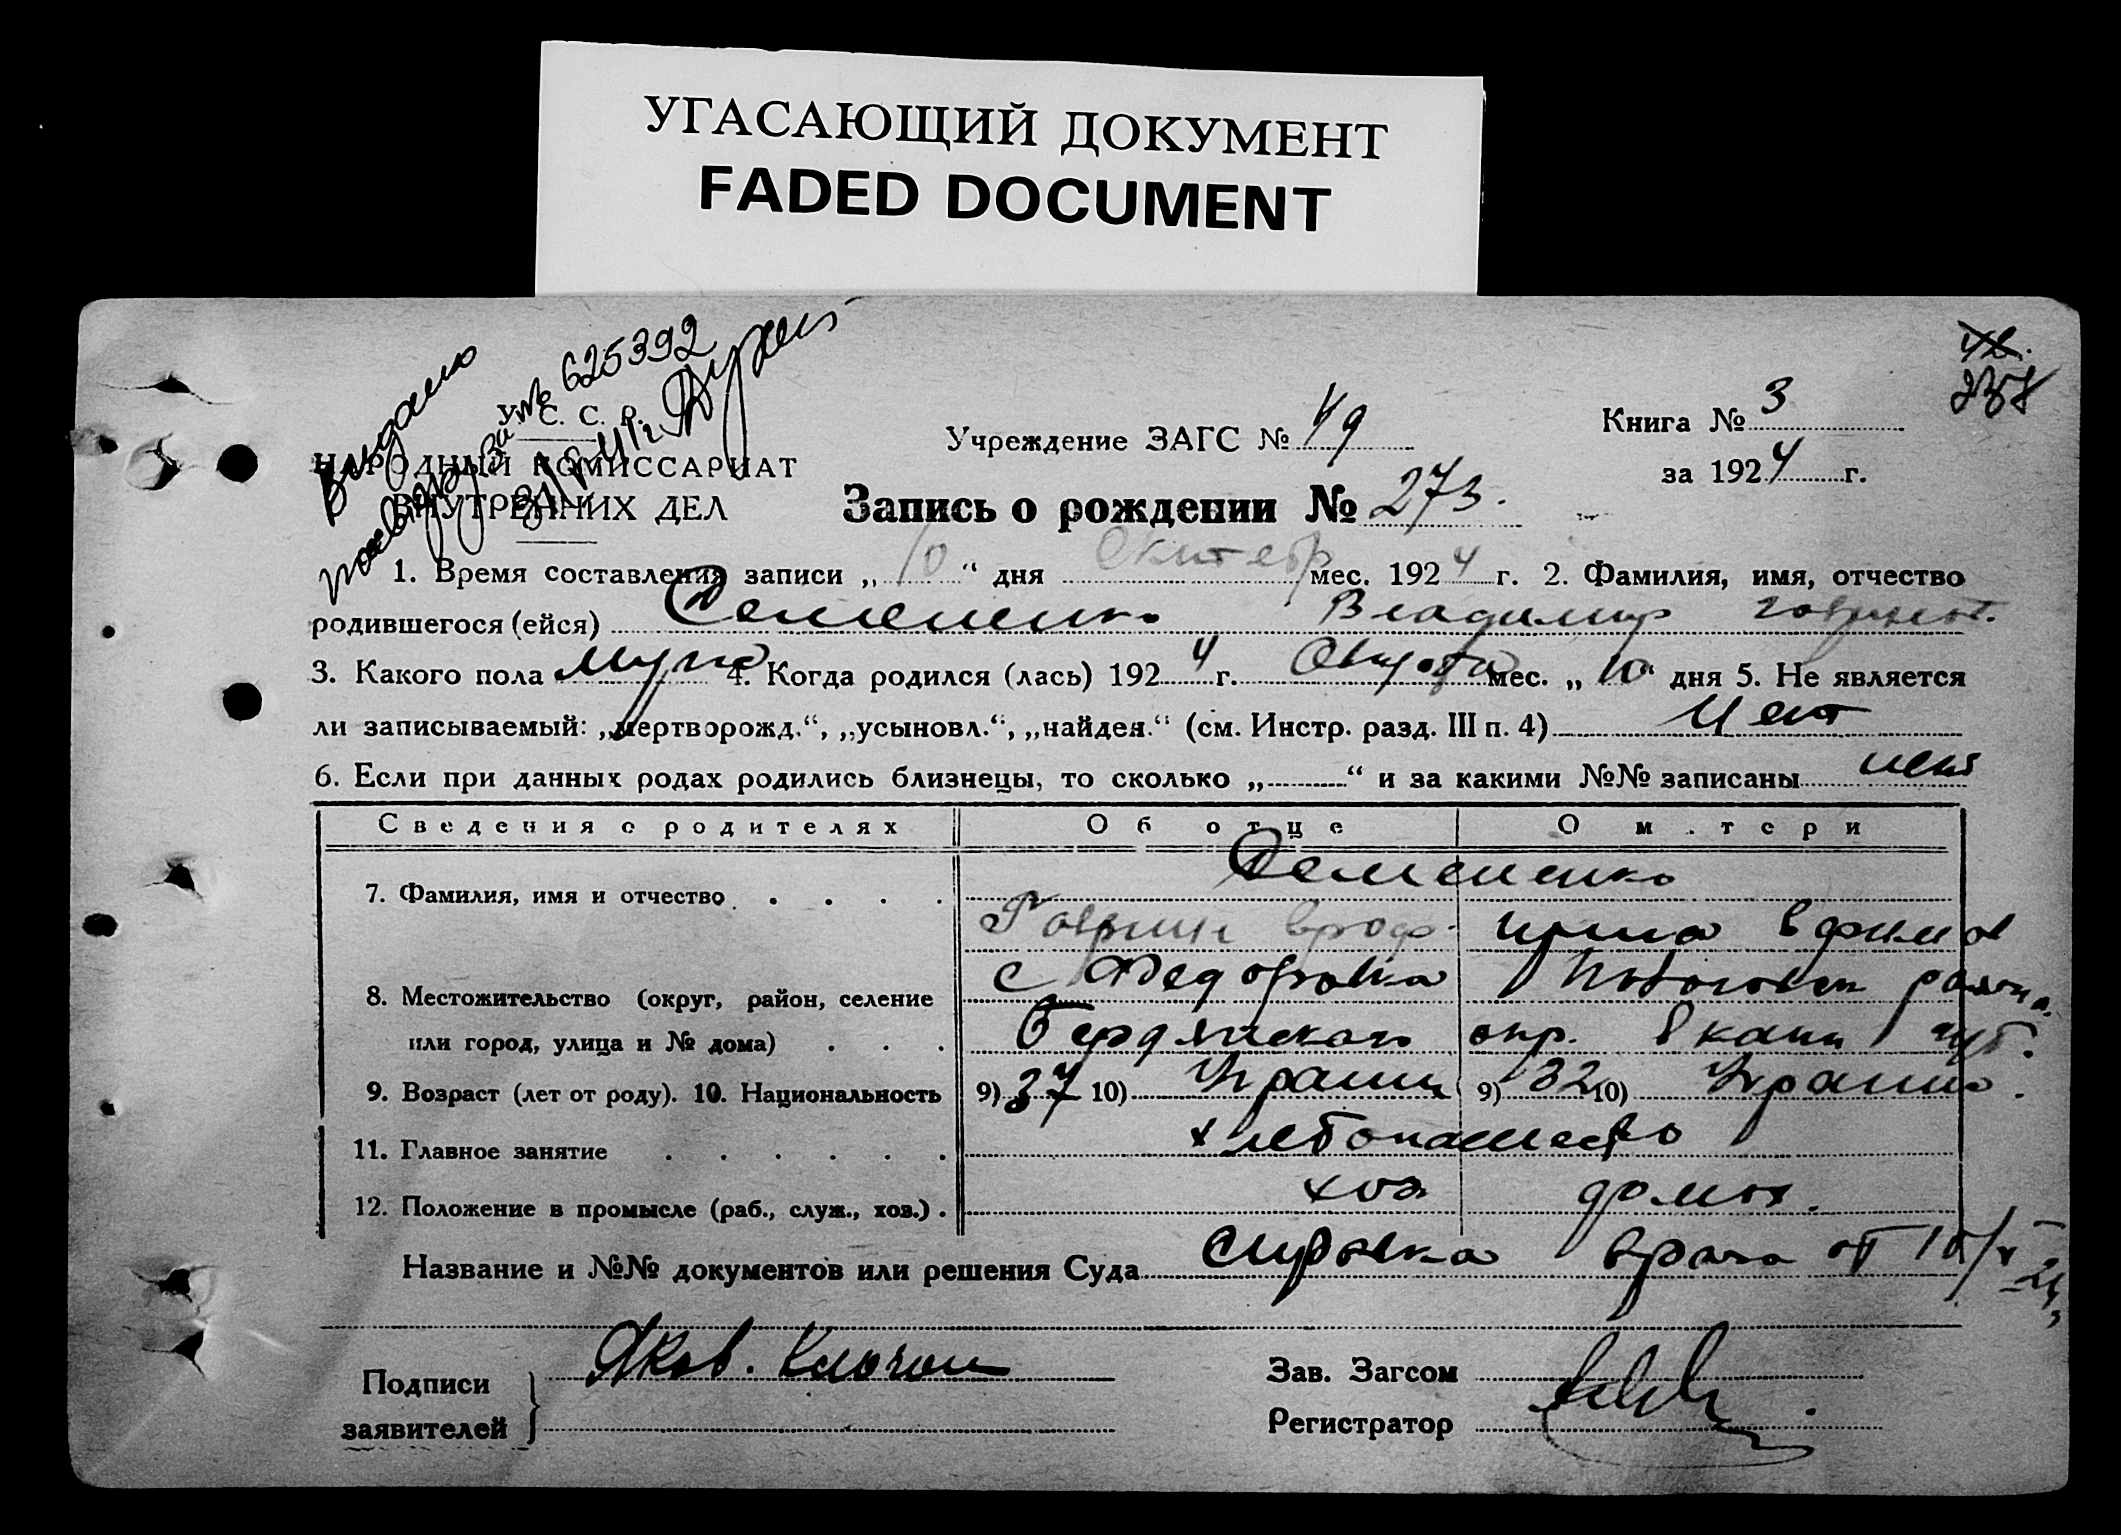 УГАСАЮЩИЙ ДОКУМЕНТ
FADED DOCUMENT
Выдано
№ 625392
238
У. С. С. Р.
НАРОДНЫЙ КОМИССАРИАТ
ВНУТРЕННИХ ДЕЛ
Учреждение ЗАГС №
Книга № 3
за 1924 г.
Запись о рождении № 273.
1. Время составления записи „10“ дня Октебр мес. 1924 г. 2. Фамилия, имя, отчество
родившегося (ейся) Семененко Владимир
3. Какого пола муж 4. Когда родился (лась) 1924 г. мес. „10“ дня 5. Не является
ли записываемый: „мертворожд.“, „усыновл.“, „найден.“ (см. Инстр. разд. III п. 4) Нет
6. Если при данных родах родились близнецы, то сколько „ “ и за какими №№ записаны нет
Сведения о родителях Об отце О матери
Семененко
7. Фамилия, имя и отчество
с Федоровка района
8. Местожительство (округ, район, селение
или город, улица и № дома)
Бердянского окр. Екат губ.
9. Возраст (лет от роду). 10. Национальность 9) 37 10) Украин 9) 32 10) Украин.
11. Главное занятие хлебопашество
12. Положение в промысле (раб., служ., хоз.) хоз домох.
Название и №№ документов или решения Суда справка врача от 10/X-24
Подписи
заявителей
Яков.
Зав. Загсом
Регистратор